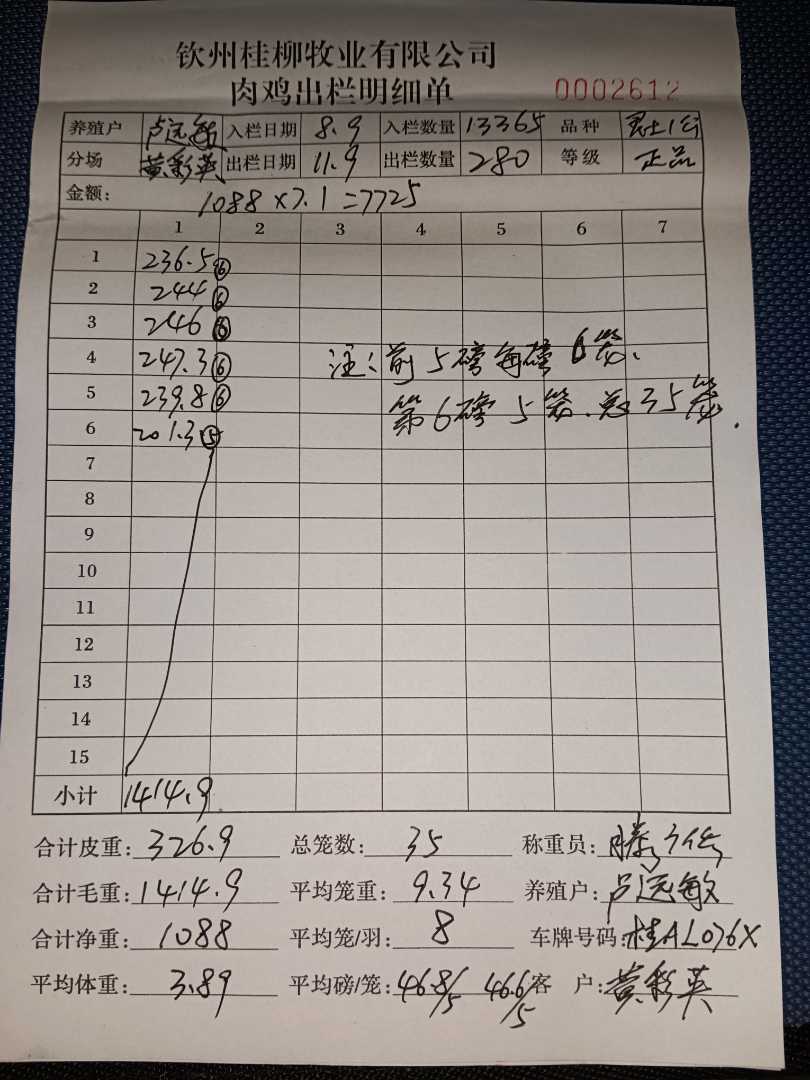 钦州桂柳牧业有限公司
肉鸡出栏明细单 0002612
养殖户 卢远敏 入栏日期 8.9 入栏数量 13365 品种
分场 黄彩英 出栏日期 11.9 出栏数量 280 等级 正品
金额: 1088×7.1=7725
1 2 3 4 5 6 7
1 236.5⑥
2 244⑥
3 246⑥
4 247.3⑥ 注:前5磅每磅6笼.
5 239.8⑥ 第6磅5笼.总35笼.
6 201.3⑤
7
8
9
10
11
12
13
14
15
小计 1414.9
合计皮重: 326.9 总笼数: 35 称重员:
合计毛重: 1414.9 平均笼重: 9.34 养殖户: 卢远敏
合计净重: 1088 平均笼/羽: 8 车牌号码: 桂AL076X
平均体重: 3.89 平均磅/笼: 46.8/5 46.6/5 客 户: 黄彩英